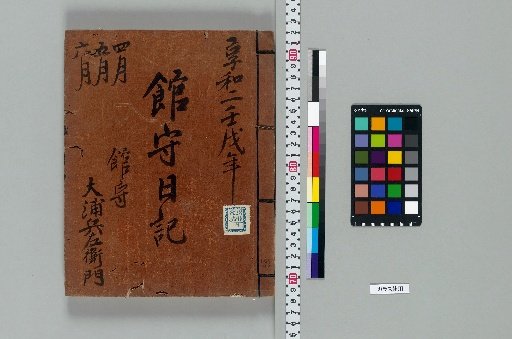 享和二壬戌年
館守日記
四月
五月
六月
館守
大浦兵左衛門